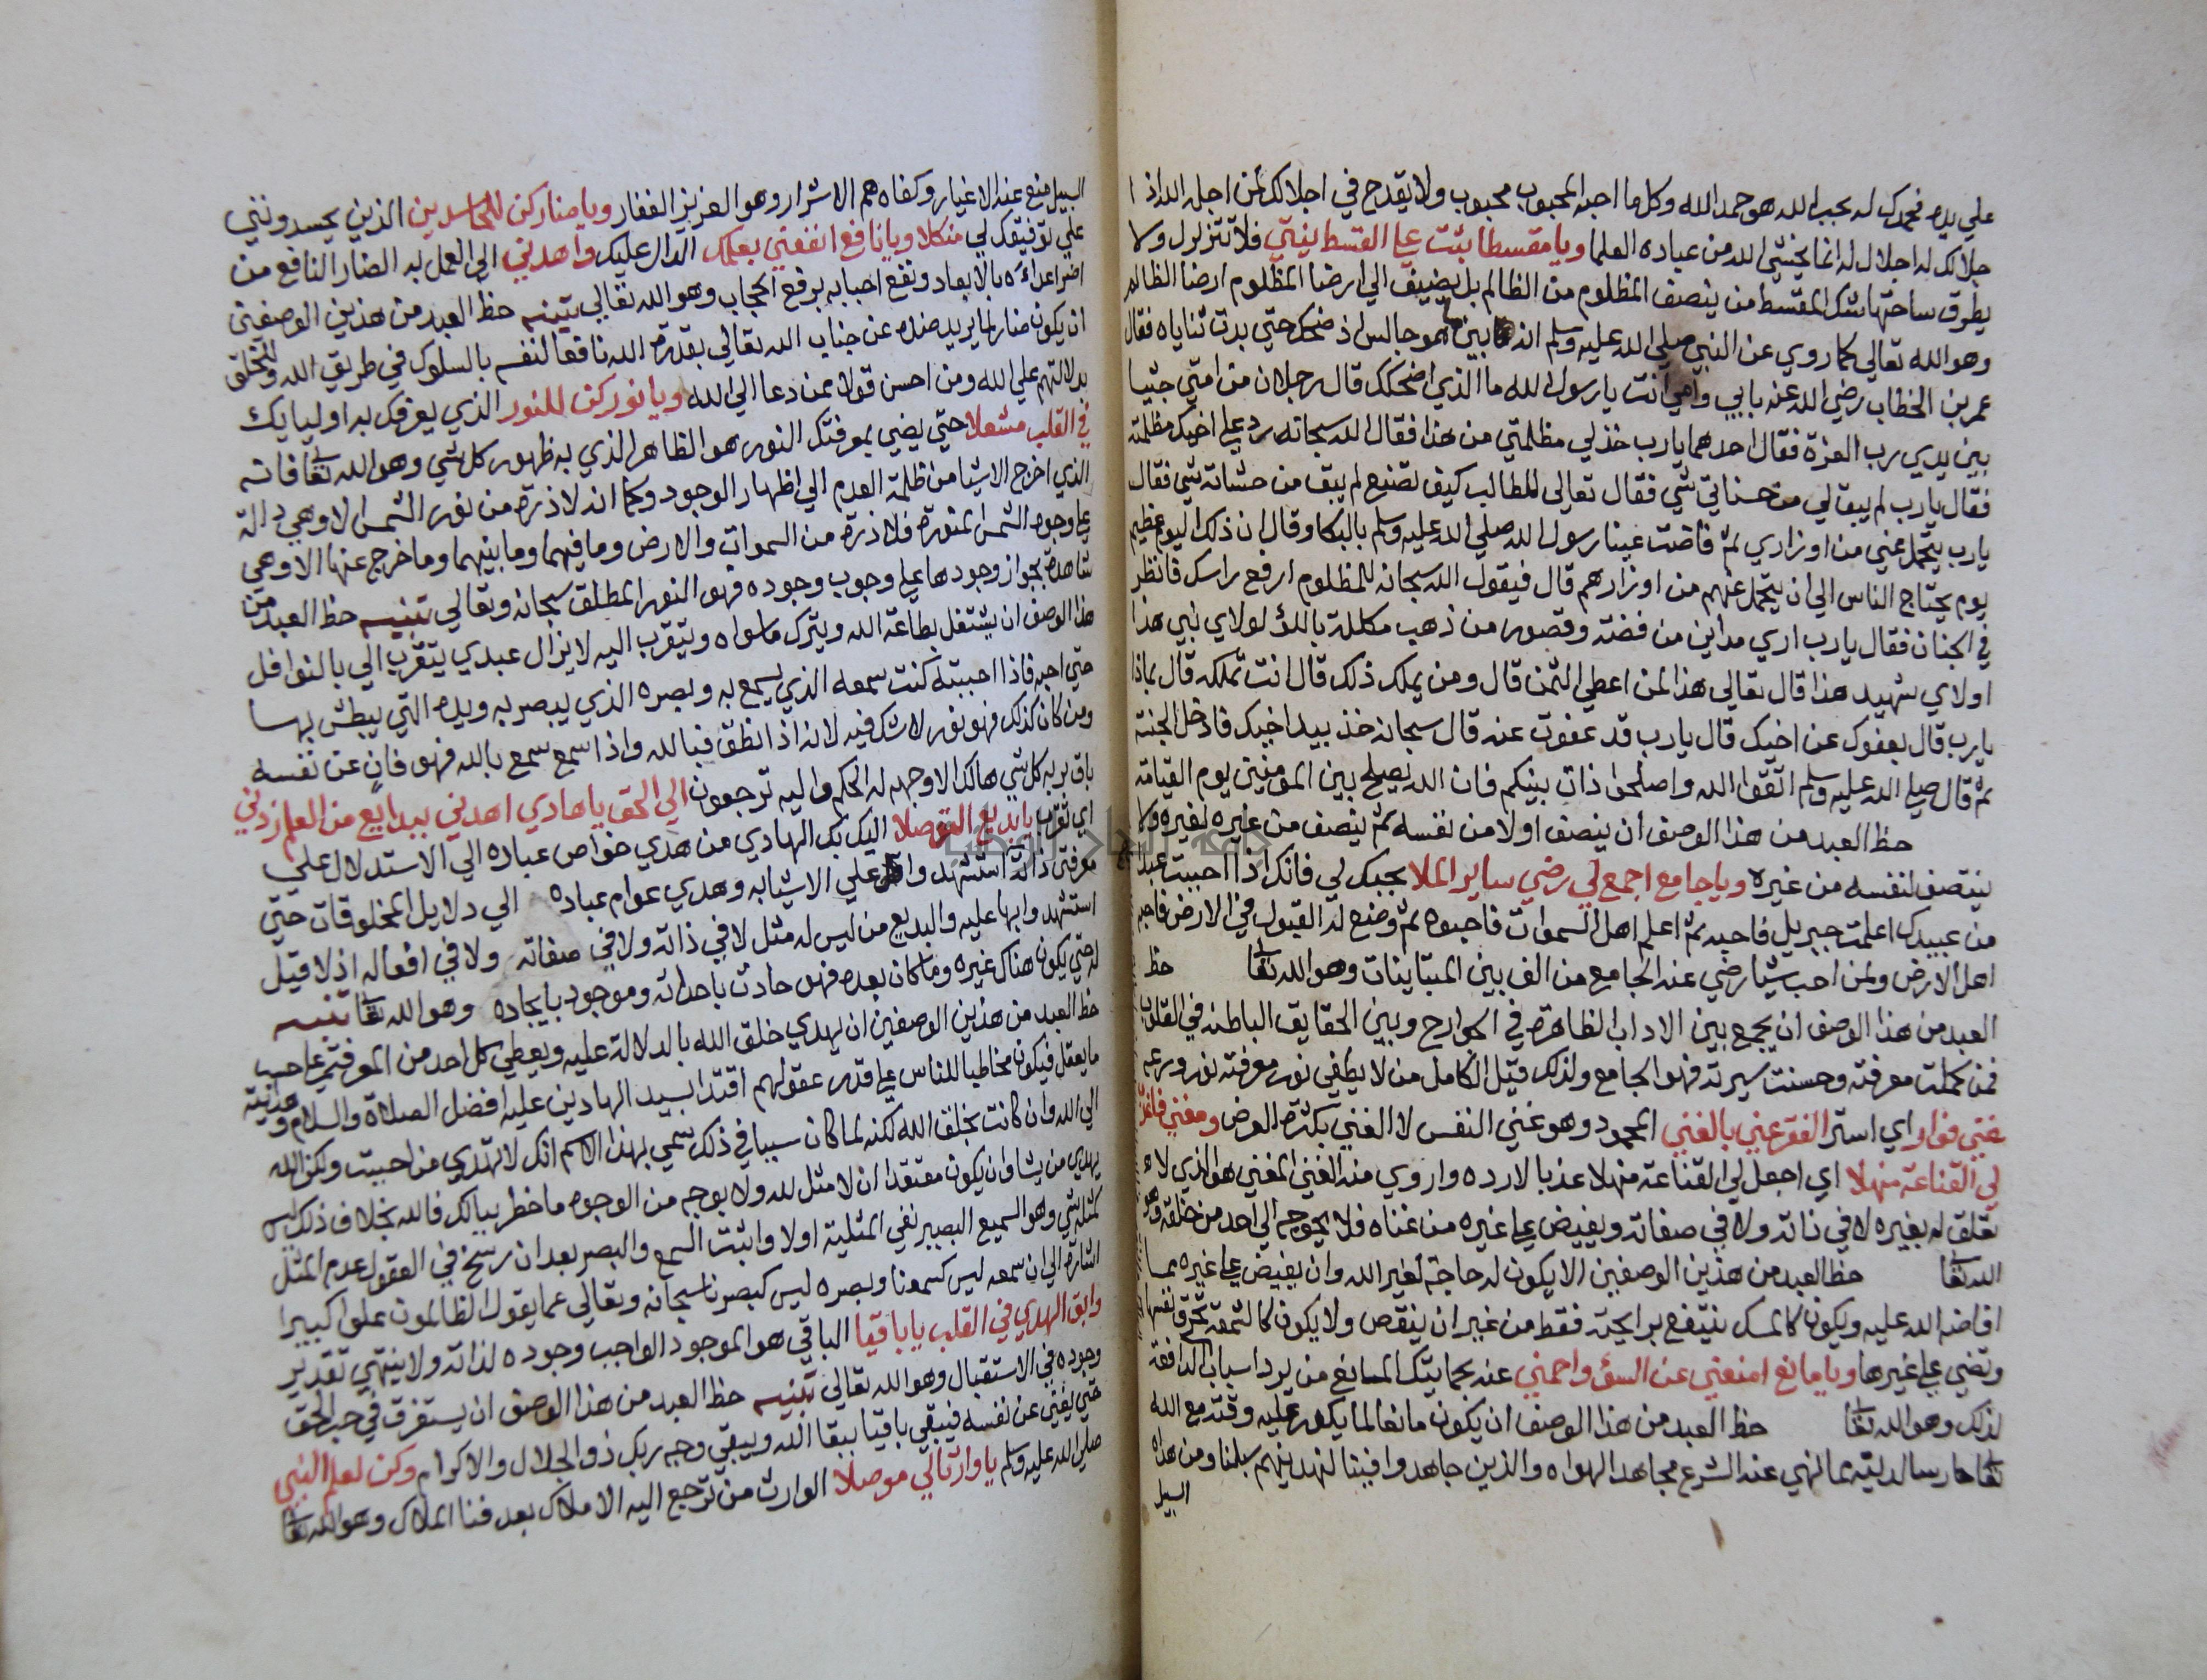 علي يده فحمدك له بحب الله هو حمد الله وكل ما احبه المحبوب محبوب ولا يقدح في اجلالك لمن اجله الله اذ ا
جلالك له اجلال له انما يخشي الله من عباده العلما ويا مقسطا بثت علي القسط ينيتي فلا تتزلزل ولا
يطرق ساحتها شك المقسط من ينصف المظلوم من الظالم بل يضيف الي ارضا المظلوم ارضا الظالم
وهو الله تعالي كما روي عن النبي صلي الله عليه وسلم انه بينما هو جالس اذ ضحك حتي بدت ثناياه فقال
عمر بن الخطاب رضي الله عنه بابي وامي انت يا رسول الله ما الذي اضحكك قال رجلان من امتي جثيا
بين يدي رب العزة فقال احدهما يا رب خذ لي مظلمتي من هذا فقال الله سبحانه رد علي اخيك مظلمته
فقال يا رب لم يبق لي من حسناتي شي فقال تعالي للطالب كيف تصنع لم يبق من حسناته شي فقال
يا رب يتحمل عني من اوزاري ثم فاضت عينا رسول الله صلي الله عليه وسلم بالبكا وقال ان ذلك اليوم عظيم
يوم يحتاج الناس الي ان يتحمل عنهم من اوزارهم قال فيقول الله سبحانه للمظلوم ارفع راسك فانظر
في الجنان فقال يا رب اري مداين من فضة وقصور من ذهب مكللة باللؤلؤ لاي نبي هذا
او لاي شهيد هذا قال تعالي هذا لمن اعطي الثمن قال ومن يملك ذلك قال انت تملكه قال بماذا
يا رب قال بعفوك عن اخيك قال يا رب قد عفوت عنه قال سبحانه خذ بيد اخيك فادخل الجنة
ثم قال صلي الله عليه وسلم اتقوا الله واصلحوا ذات بينكم فان الله يصلح بين المومنين يوم القيامة
حظ العبد من هذا الوصف ان ينصف اولا من نفسه ثم ينصف من غيره لغيره ولا
ينتصف لنفسه من غيره ويا جامع اجمع لي رضي ساير الملا بحبك لي فانك اذا احببت عبدا
من عبيدك اعلمت جبريل فاحبه ثم اعلم اهل السموات فاحبوه ثم وضع له القبول في الارض فاحبه
اهل الارض ولمن احب شيا رضي عنه الجامع من الف بين المتباينات وهو الله تعا حظ
العبد من هذا الوصف ان يجمع بين الاداب الظاهرة في الجوارح وبين الحقايق الباطنه في القلوب
فمن كملت معرفته وحسنت سيرته فهو الجامع ولذلك قيل الكامل من لا يطفي نور معرفته نور ورعه
اي استر الفقر عني بالغني المحمود وهو غني النفس لا الغني بكثرة العرض ومغني
لي القناعة منهلا اي اجعل لي القناعة منهلا عذبا لارده واروي منه الغني المغني هو الذي لا
تعلق له بغيره لا في ذاته ولا في صفاته ويفيض علي غيره من غناه فلا يحوجه الي احد من خلقه وهو
الله تعا حظ العبد من هذين الوصفين الا يكون له حاجة لغير الله وان يفيض علي غيره مما
افاضه الله عليه ويكون كالمسك ينتفع برايحته فقط من غير ان ينقص ولا يكون كالشمعة تحرق نفسها
وتضي علي غيرها ويا مانع امنعني عن السؤ واحمني عنه بحمايتك المانع من يرد اسباب الدافعة
لذلك وهو الله تعا حظ العبد من هذا الوصف ان يكون مانعا لما يكدر عليه وقته مع الله
تعا حارسا لدينه مما نهي عنه الشرع مجاهدا لهواه والذين جاهدوا فينا لنهدينهم سبلنا ومن هداه
السبيل
السبيل منع عنه الاغيار وكفاه هم الاشرار وهو العزيز الغفار ويا ضار كن للحاسدين الذين يحسدونني
علي توفيقك لي منكلا ويا نافع انفعني بعلمك الدال عليك واهدني الي العمل به الضار النافع من
اضر اعداءه بالابعاد ونفع احبابه برفع الحجاب وهو الله تعالي تنبيه حظ العبد من هذين الوصفين
ان يكون ضارا لما يريد صده عن جناب الله تعالي بقدرة الله نافعا لنفسه بالسلوك في طريق الله وللخلق
بدلالتهم علي الله ومن احسن قولا ممن دعا الي الله ويا نور كن للنور الذي يعرفك به اوليايك
في القلب مشعلا حتي يضي بمعرفتك النور هو الظاهر الذي به ظهور كل شي وهو الله تعا فانه
الذي اخرج الاشيا من ظلمة العدم الي اظهار الوجود وكما انه لا ذرة من نور الشمس الا وهي دالة
علي وجود الشمس المنورة فلا ذرة من السموات والارض وما فيهما وما بينهما وما خرج عنها الا وهي
شاهدة بجواز وجودها علي وجوب وجوده فهو النور المطلق سبحانه وتعالي تنبيه حظ العبد من
هذا الوصف ان يشتغل بطاعة الله ويترك ما سواه ويتقرب اليه لا يزال عبدي يتقرب الي بالنوافل
حتي احبه فاذا احببته كنت سمعه الذي يسمع به وبصره الذي يبصر به ويده التي يبطش بها
ومن كان كذلك فهو نور لا شك فيه لانه اذا نطق فبالله واذا سمع سمع بالله فهو فان عن نفسه
باق بربه كل شي هالك الا وجهه له الحكم واليه ترجعون الي الحق يا هادي اهدني ببدايع من العلم زدني
اي تقرب يا بديع التوصلا اليك بك الهادي من هدي خواص عباده الي الاستدلال علي
معرفة ذاته استشهد علي الاشيا به وهدي عوام عباده الي دلايل المخلوقات حتي
استشهدوا بها عليه والبديع من ليس له مثل لا في ذاته ولا في صفاته ولا في افعاله اذ لا قبل
له حتي يكون هناك غيره وما كان بعده فهو حادث باحداثه وموجود بايجاده وهو الله تعا تنبيه
حظ العبد من هذين الوصفين ان يهدي خلق الله بالدلالة عليه ويعطي كل احد من المعرفة علي حسب
ما يعقل فيكون مخاطبا للناس علي قدر عقولهم اقتدا بسيد الهادين عليه افضل الصلاة والسلام وهدايته
الي الله وان كانت بخلق الله لكنه لما كان سببا في ذلك سمي بهذا الاسم انك لا تهدي من احببت ولكن الله
يهدي من يشا وان يكون معتقدا ان لا مثل لله ولا بوجه من الوجوه ما خطر ببالك فالله بخلاف ذلك ليس
كمثله شي وهو السميع البصير نفي المثلية اولا واثبت السمع والبصر بعد ان رسخ في العقول عدم المثل
اشارة الي ان سمعه ليس كسمعنا وبصره ليس كبصرنا سبحانه وتعالي عما يقول الظالمون علوا كبيرا
وابق الهدي في القلب يا باقيا الباقي هو الموجود الواجب وجوده لذاته ولا ينتهي تقدير
وجوده في الاستقبال وهو الله تعالي تنبيه حظ العبد من هذا الوصف ان يستغرق في حب الحق
حتي يفني عن نفسه فيبقي باقيا ببقا الله ويبقي وجه ربك ذو الجلال والاكرام وكن لعلم النبي
صلي الله عليه وسلم يا وارثا لي موصلا الوارث من ترجع اليه الاملاك بعد فنا الملاك وهو الله تعا